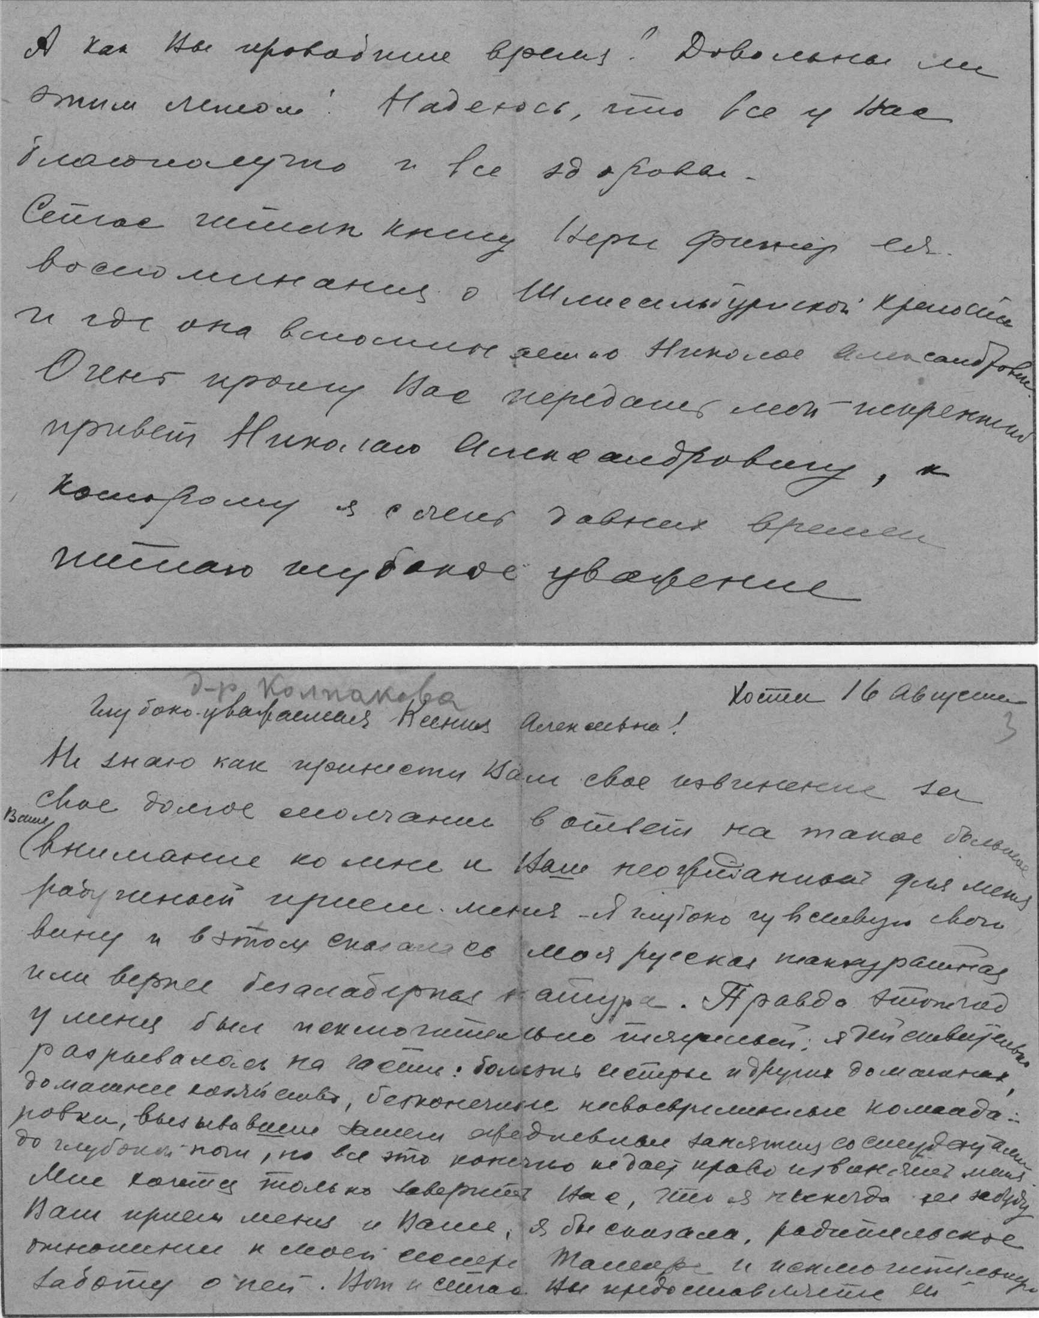 А как Вы проводите время? Довольны ли
этим летом? Надеюсь, что все у Вас
благополучно и все здоровы.
Сейчас читаю книгу Веры Фигнер ея
воспоминания о Шлиссельбургской крепости
и где она вспоминает о Николае Александровиче.
Очень прошу Вас передать мой искренний
привет Николаю Александровичу, к
которому я с очень давних времен
питаю глубокое уважение
д-р Колпакова
Хоста 16 Августа
3
Глубокоуважаемая Ксения Алексеевна!
Не знаю как принести Вам свое извинение за
свое долгое молчание в ответ на такое большое
Ваше
(внимание ко мне и Ваш неожиданный для меня
радушный прием меня - Я глубоко чувствую свою
вину и в этом сказалась моя русская неаккуратная
или вернее безалаберная натура. Правда этот год
у меня был исключительно тяжелый: я действительно
разрывалась на части: болезнь сестры и других домашних,
домашнее хозяйство, бесконечные несвоевременные команди-
ровки, вызывавшие затем ежедневные занятия со студентами
до глубокой ночи, но все это конечно не дает право извинять меня.
Мне хочется только заверить Вас, что я никогда не забуду
Ваш прием меня и Ваше, я бы сказала, родительское
отношение к моей сестре Тамаре и исключительную
заботу о ней. Вот и сейчас Вы предоставляете ей